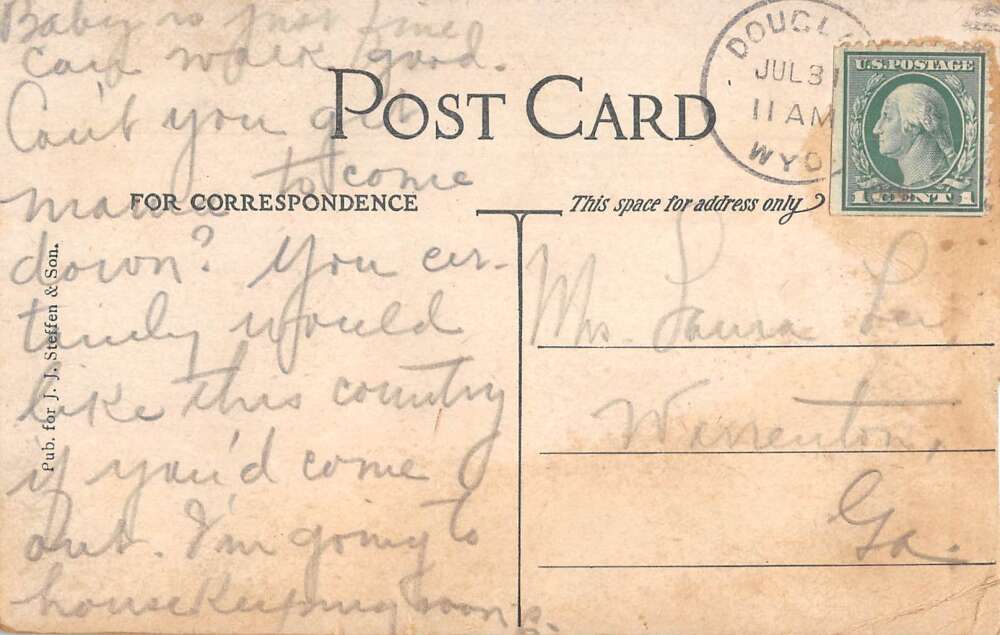 Baby is just fine
can walk good.
Can't you get
mama to come
down? You cer-
tainly would
like this country
if you'd come
out. I'm going to
housekeeping soon.
POST CARD
FOR CORRESPONDENCE
This space for address only
Pub. for J. J. Steffen & Son.
DOUGL
JUL 31
11 AM
WYO.
U.S. POSTAGE
1 CENT 1
Mrs. Laura
Warrenton,
Ga.